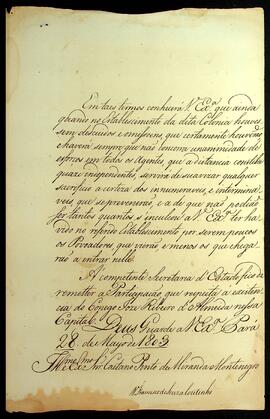 Em taes termos conhecerá V. Exa. que ainda
quando no Establecimento da dita Colonia houvese
sem descuidos e omissoens, que certamente houverão
e haverá sempre que não concorra unanimidade de
esforços em todos os Agentes, que a distancia constitue
quazi independentes, servirá de suavizar qualquer
sacrificio a certeza dos innumeraveis, e intermina
veis que se preveneirão, e a de que não podião
ser tantos quantos se inculcou a V. Exa. ter ha
vido no referido Establecimento por serem poucos
os Povoadores que vierão, e menos os que chega
rão a entrar nelle.
A competente Secretaria d'Estado fico de
remetter a Participação que respeita a existencia
do Conego José Ribeiro d'Almeida nesta
Capital. Deus Guarde a V. Exa. Pará
28 de Mayo de 1803
Illmo. e Exmo. Snr. Caetano Pinto de Miranda Montenegro
D. Francisco de Souza Coutinho